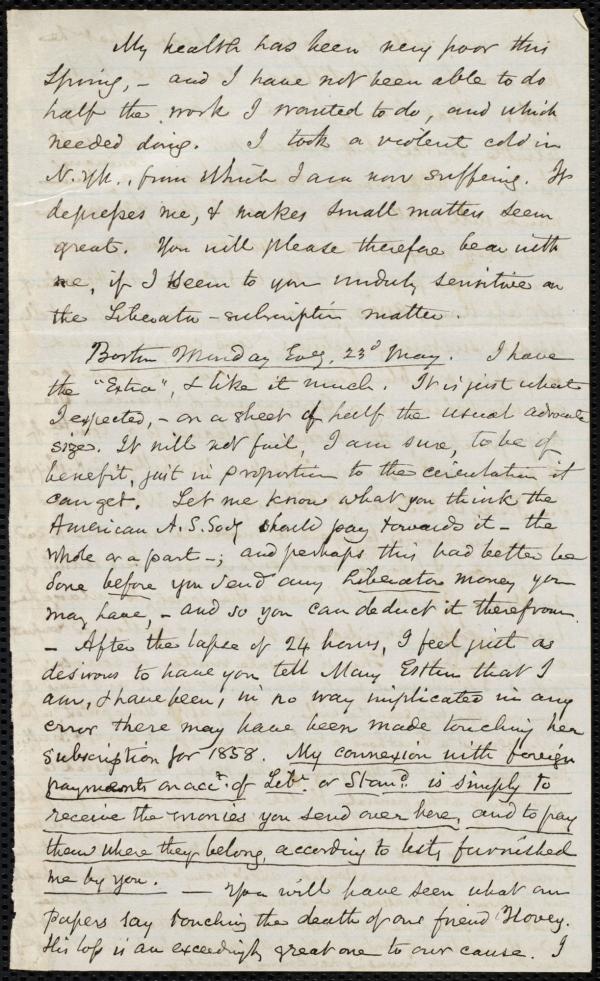 My health has been very poor this
Spring, - and I have not been able to do
half the work I wanted to do, and which
needed doing. I took a violent cold in
N. Yk., from which I am now suffering. It
depresses me, & makes small matters seem
great. You will please therefore bear with
me, if I seem to you unduly sensitive on
the Liberator - subscription matter.
Boston Monday Eveg, 23d May. I have
the "Extra", & like it much. It is just what
I expected, - on a sheet of half the usual advocate
size. It will not fail, I am sure, to be of
benefit, just in proportion to the circulation it
can get. Let me know what you think the
American A. S. Socy should pay towards it - the
whole or a part -; and perhaps this had better be
done before you send any Liberator money you
may have, - and so you can deduct it therefrom.
- After the lapse of 24 hours, I feel just as
desirous to have you tell Mary Estlin that I
am, & have been, in no way implicated in any
error there may have been made touching her
subscription for 1858. My connexion with foreign
payments on acct. of Libr. or Stand. is simply to
receive the monies you send over here, and to pay
them where they belong, according to lists furnished
me by you. — You will have seen what our
papers say touching the death of our friend Hovey.
His loss is an exceedingly great one to our cause. I